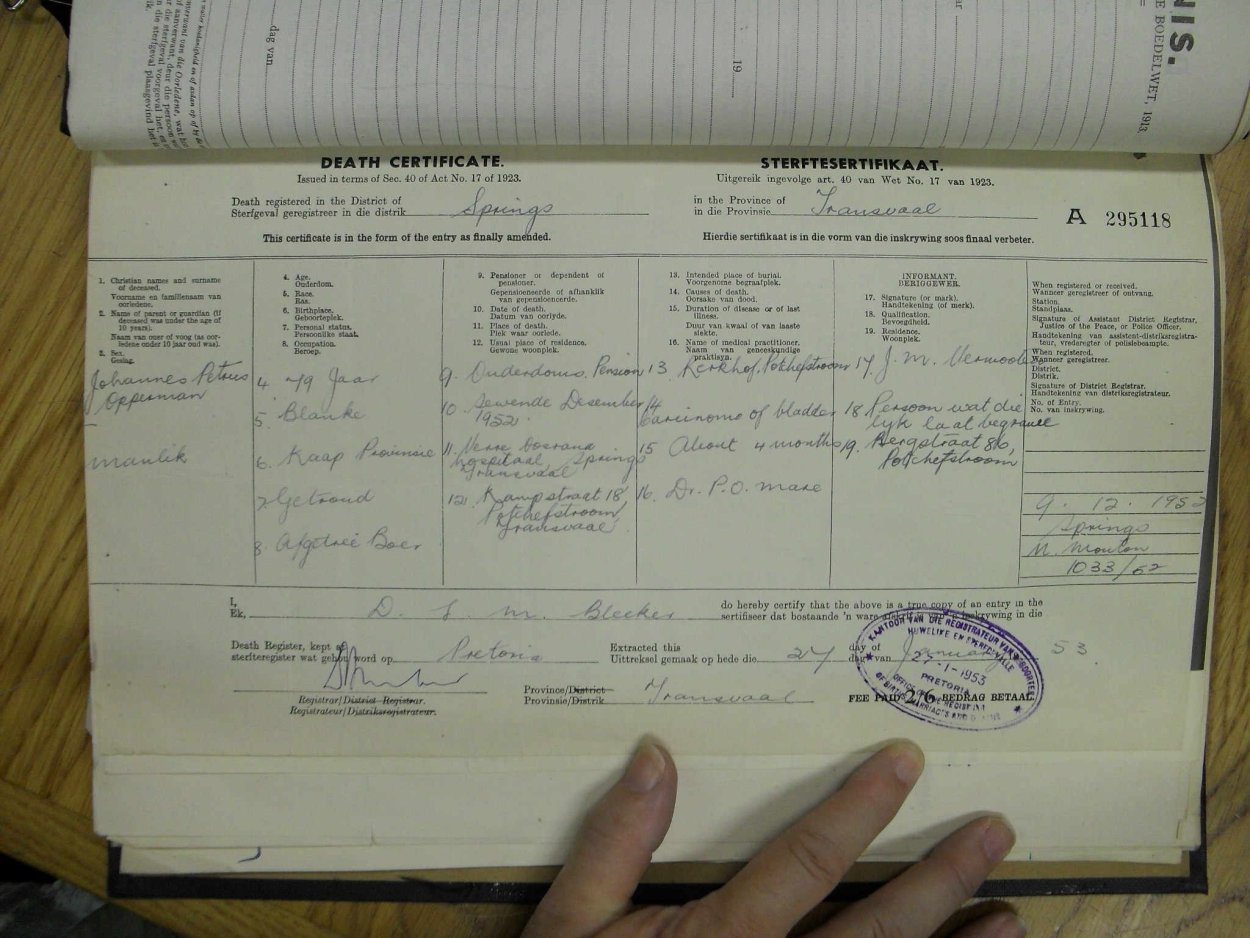 NIS.
E BOEDELWET, 1913.
19
dag van
DEATH CERTIFICATE.
STERFTESERTIFIKAAT.
Issued in terms of Sec. 40 of Act No. 17 of 1923.
Uitgereik ingevolge art. 40 van Wet No. 17 van 1923.
Death registered in the District of
Sterfgeval geregistreer in die distrik Springs
in the Province of
in die Provinsie Transvaal
A 295118
This certificate is in the form of the entry as finally amended.
Hierdie sertifikaat is in die vorm van die inskrywing soos finaal verbeter.
1. Christian names and surname
of deceased.
Voorname en familienaam van
oorledene.
2. Name of parent or guardian (if
deceased was under the age of
10 years).
Naam van ouer of voog (as oor-
ledene onder 10 jaar oud was).
3. Sex.
Geslag.
Johannes Petrus
Opperman
manlik
4. Age.
Ouderdom.
5. Race.
Ras.
6. Birthplace.
Geboorteplek.
7. Personal status.
Persoonlike staat.
8. Occupation.
Beroep.
4 79 Jaar
5 Blanke
6. Kaap Provinsie
7. Getroud
8. Afgetree Boer
9. Pensioner or dependent of
pensioner.
Gepensioeneerde of afhanklik
van gepensioneerde.
10. Date of death.
Datum van oorlyde.
11. Place of death.
Plek waar oorlede.
12. Usual place of residence.
Gewone woonplek.
9. Ouderdoms Pension
10. Sewende Desember
1952
11. Verre oosrand
hospitaal, Springs
Transvaal
12. Kampstraat 18
Potchefstroom
Transvaal
13. Intended place of burial.
Voorgenome begraafplek.
14. Causes of death.
Oorsake van dood.
15. Duration of disease or of last
illness.
Duur van kwaal of van laaste
siekte.
16. Name of medical practitioner.
Naam van geneeskundige
praktisyn.
13 Kerkhof, Potchefstroom
14
Carcinoma of bladder
15 About 4 months
16. Dr. P.O. Mare
INFORMANT.
BERIGGEWER.
17. Signature (or mark).
Handtekening (of merk).
18. Qualification.
Bevoegdheid.
19. Residence.
Woonplek.
17. J. M. Vermooten
18 Persoon wat die
lyk laat begrawe
19. Bergstraat 86,
Potchefstroom
When registered or received.
Wanneer geregistreer of ontvang.
Station.
Standplaas.
Signature of Assistant District Registrar,
Justice of the Peace, or Police Officer.
Handtekening van assistent-distriksregistra-
teur, vrederegter of polisiebeampte.
When registered.
Wanneer geregistreer.
District.
Distrik.
Signature of District Registrar.
Handtekening van distriksregistrateur.
No. of Entry.
No. van inskrywing.
9. 12. 1952
Springs
M. Mouton
1033/52
I,
Ek, D. L. M. Blecker
do hereby certify that the above is a true copy of an entry in the
sertifiseer dat bostaande 'n ware afskrif is van 'n inskrywing in die
Death Register, kept at
sterfteregister wat gehou word op Pretoria
Extracted this
Uittreksel gemaak op hede die 27
day of
dag van January 53.
Registrar/District Registrar.
Registrateur/Distriksregistrateur.
Province/District
Provinsie/Distrik Transvaal
FEE PAID 2/6 BEDRAG BETAAL
KANTOOR VAN DIE REGISTRATEUR VAN GEBOORTES
HUWELIKE EN STERFGEVALLE
27-1-1953
PRETORIA
OFFICE OF THE REGISTRAR
OF BIRTHS, MARRIAGES AND DEATHS